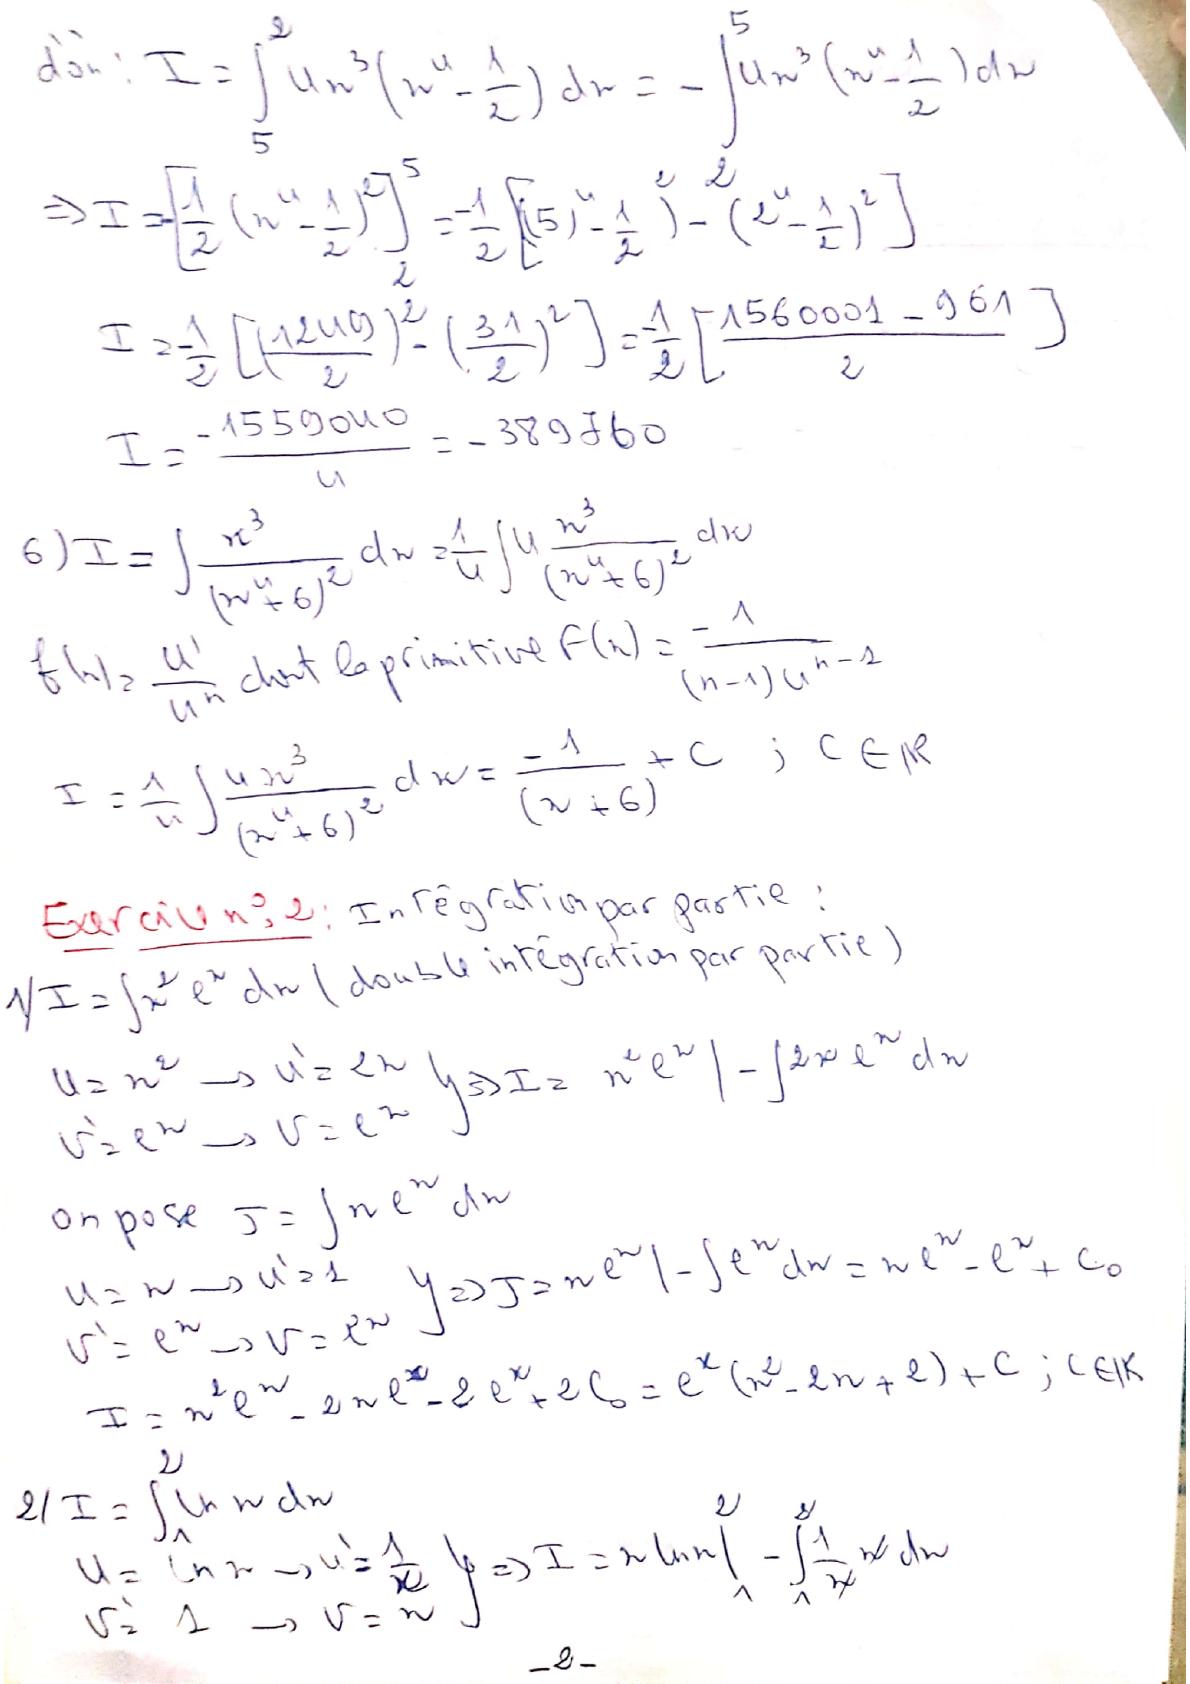 d'où : I = ∫_5^2 4x³(x⁴ - 1/2) dx = - ∫_2^5 4x³(x⁴ - 1/2) dx
⇒ I = -[1/2 (x⁴ - 1/2)²]_2^5 = -1/2 [((5)⁴ - 1/2)² - (2⁴ - 1/2)²]
I = -1/2 [(1249/2)² - (31/2)²] = -1/2 [(1560001 - 961)/2]
I = -1559040/4 = -389760
6) I = ∫ x³/(x⁴+6)² dx = 1/4 ∫ 4 x³/(x⁴+6)² dx
f(x) = u'/uⁿ dont la primitive F(x) = -1/((n-1)uⁿ⁻¹)
I = 1/4 ∫ 4x³/(x⁴+6)² dx = -1/(x+6) + C ; C ∈ ℝ
Exercice n° 2 : Intégration par partie :
1/ I = ∫x² eˣ dx (double intégration par partie)
u = x² → u' = 2x } ⇒ I = x²eˣ | - ∫2x eˣ dx
v' = eˣ → v = eˣ
on pose J = ∫x eˣ dx
u = x → u' = 1 } ⇒ J = x eˣ | - ∫eˣ dx = x eˣ - eˣ + C₀
v' = eˣ → v = eˣ
I = x²eˣ - 2xeˣ - 2eˣ + 2C₀ = eˣ (x² - 2x + 2) + C ; C ∈ ℝ
2/ I = ∫_1^2 ln x dx
u = ln x → u' = 1/x } ⇒ I = x ln x |_1^2 - ∫_1^2 1/x x dx
v' = 1 → v = x
-2-